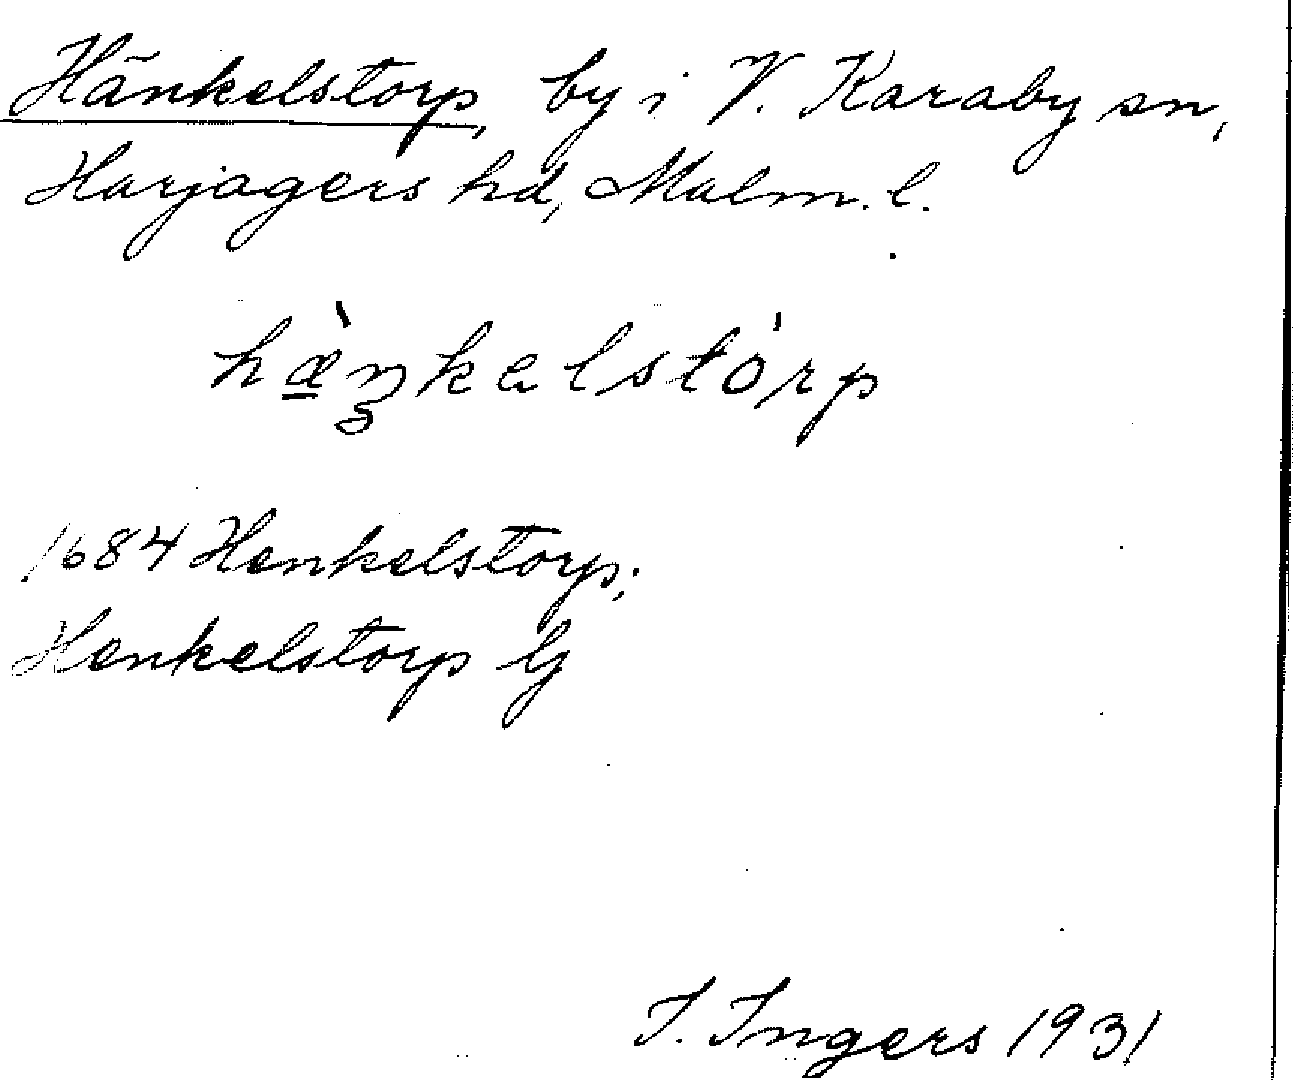 Hänkelstorp, by i V. Karaby sn,
Harjagers hd, Malm. l.
hæ̀ŋkelstórp
1684 Henkelstorp;
Henkelstorp by
I. Ingers 1931